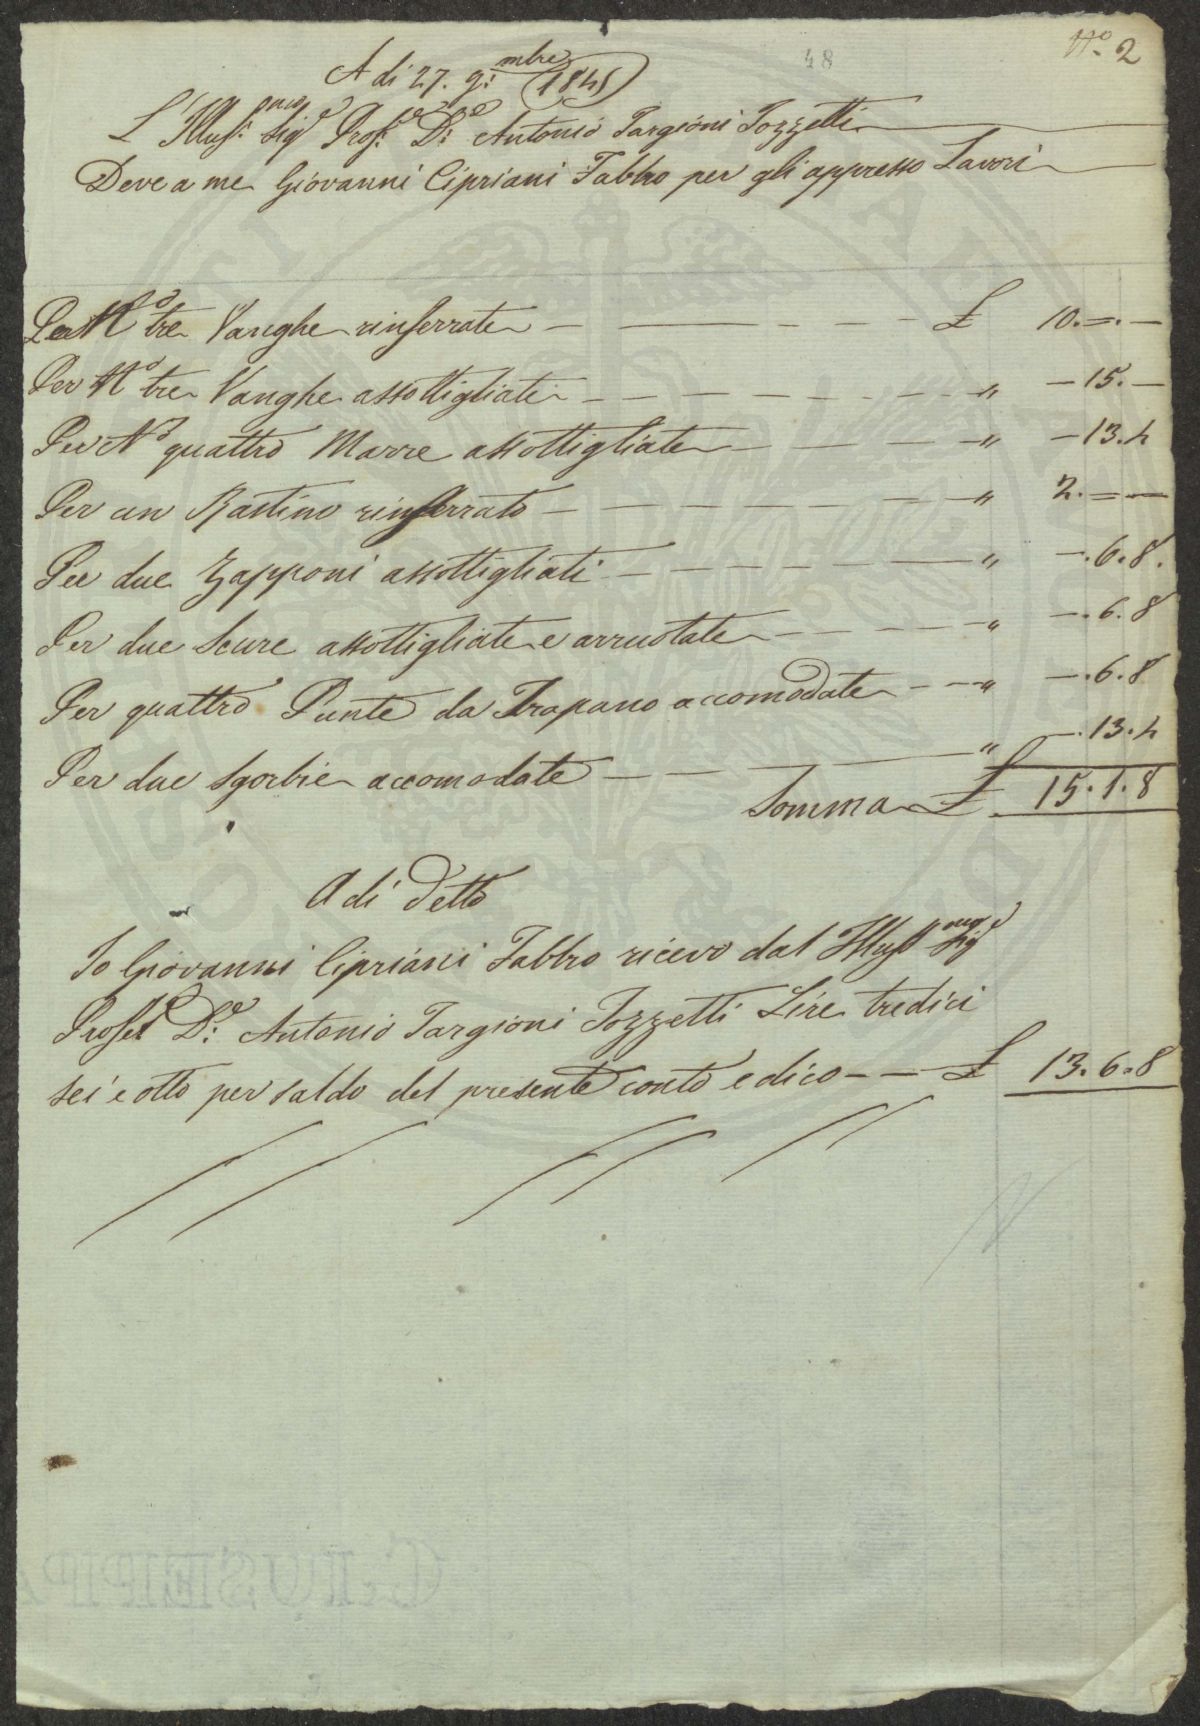 Nº 2
48
A di 27. 9:mbre 1845
L'Illus:mo Sigr Prof:re D:re Antonio Targioni Tozzetti
Deve a me Giovanni Cipriani Fabbro per gli appresso Lavori
Per Nº tre Vanghe rinferrate — — — — — £ 10.=.—
Per Nº tre Vanghe assottigliate — — — — — " —15.—
Per Nº quattro Marre assottigliate — — — — " —13.4
Per un Rastino rinferrato — — — — — " 2.=—
Per due Zapponi assottigliati — — — — — " —.6.8.
Per due Scure assottigliate e arruotate — — — " —.6.8
Per quattro Punte da Trapano accomodate — — " —.6.8
Per due Sgorbie accomodate — — — — — " —.13.4
Somma £ 15.1.8
A di detto
Io Giovanni Cipriani Fabbro ricevo dal Illus.mo Sigr
Profes.e D:re Antonio Targioni Tozzetti Lire tredici
sei e otto per saldo del presente conto e dico — — £ 13.6.8